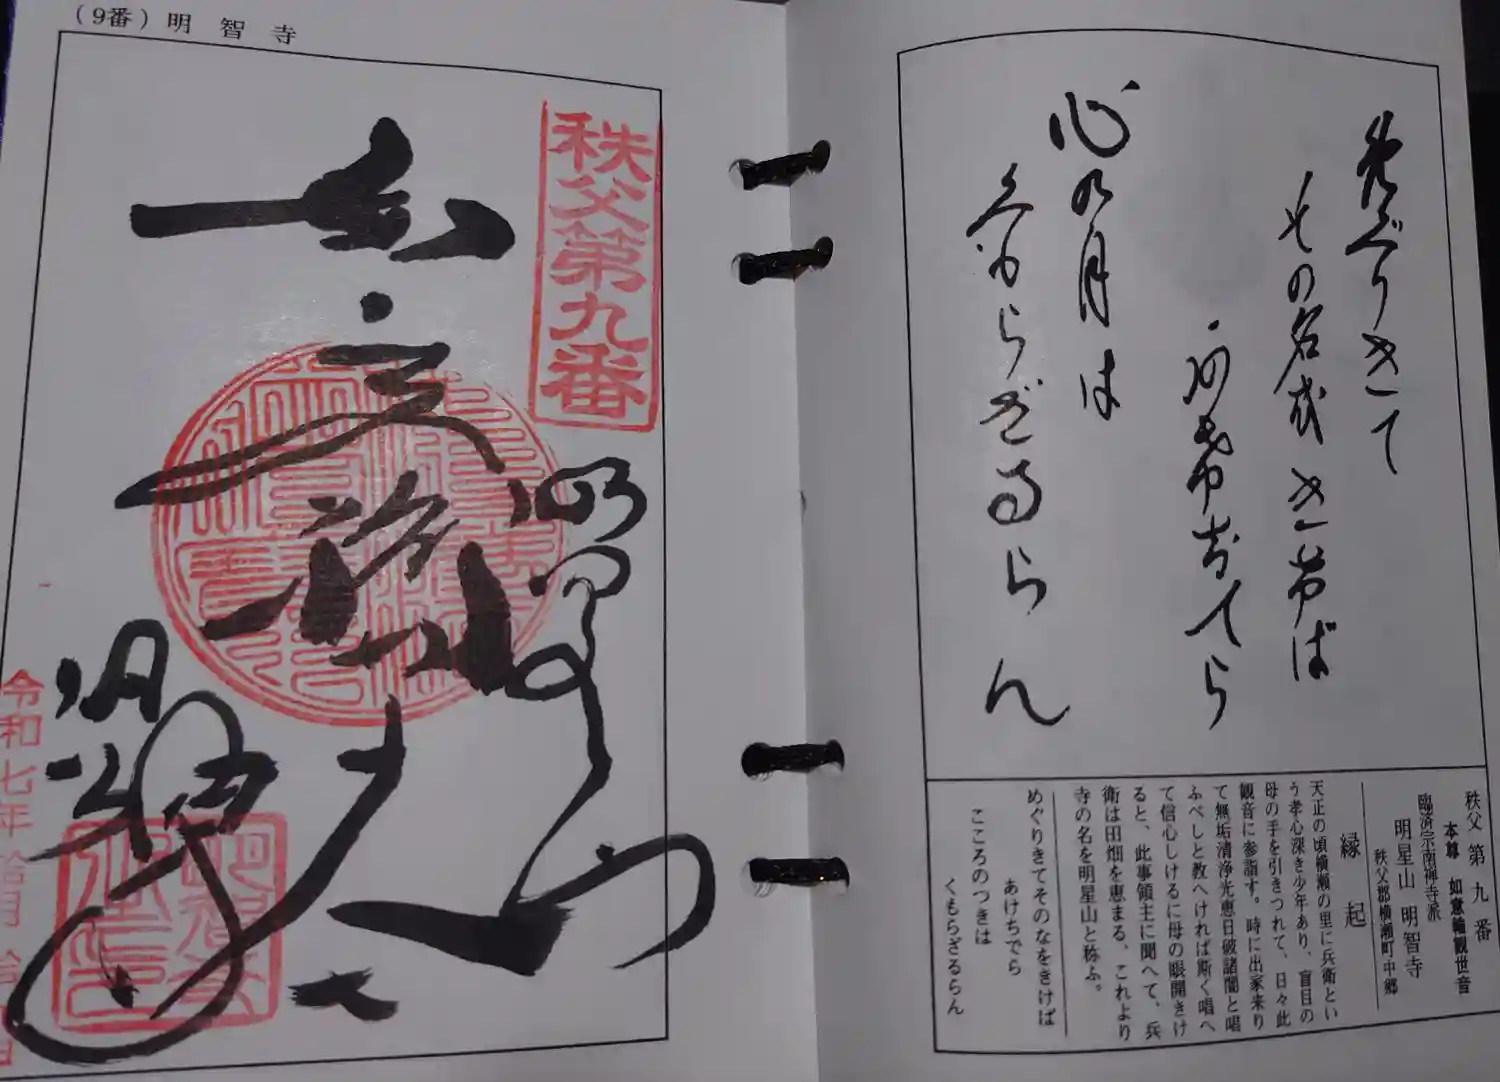 （9番）明智寺
秩父第九番
明星山
明智寺
令和七年拾月拾
めぐりきて
その名をきけば
あけちてら
心の月は
くもらざるらん
秩父第九番
本尊 如意輪観世音
臨済宗南禅寺派
明星山 明智寺
秩父郡横瀬町中郷
縁起
天正の頃横瀬の里に兵衛とい
う孝心深き少年あり、盲目の
母の手を引きつれて、日々此
観音に参詣す。時に出家来り
て無垢清浄光恵日破諸闇と唱
ふべしと教へければ斯く唱へ
て信心しけるに母の眼開きけ
ると、此事領主に聞へて、兵
衛は田畑を恵まる、これより
寺の名を明星山と称ふ。
めぐりきてそのなをきけば
あけちでら
こころのつきは
くもらざるらん